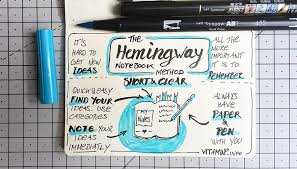 IT'S
HARD TO
GET NEW
IDEAS
THE
Hemingway
NOTEBOOK
METHOD
SHORT & CLEAR
ALL THE
MORE
IMPORTANT
IT IS TO
REMEMBER
QUICK & EASY
FIND YOUR
IDEAS. USE
CATEGORIES
NOTE YOUR
IDEAS
IMMEDIATELY
MY
NOTES
ALWAYS
HAVE
PAPER
& PEN
WITH YOU
VITAMINS
ABT
452